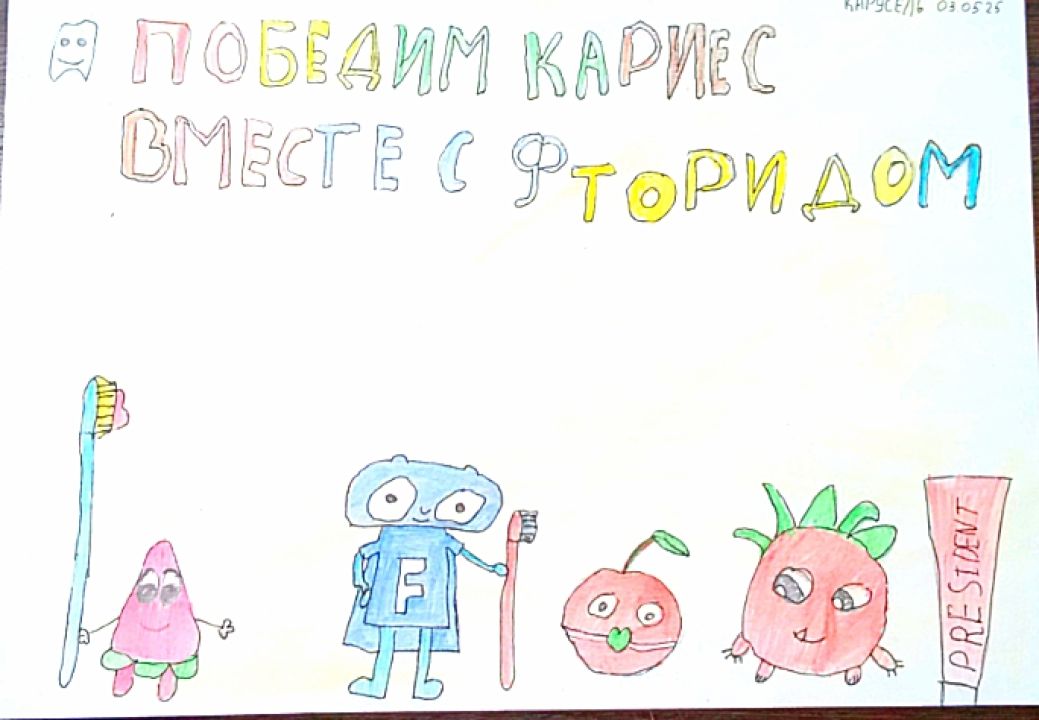 КАРУСЕЛЬ 03.05.25
ПОБЕДИМ КАРИЕС
ВМЕСТЕ С ФТОРИДОМ
F
PRESIDENT